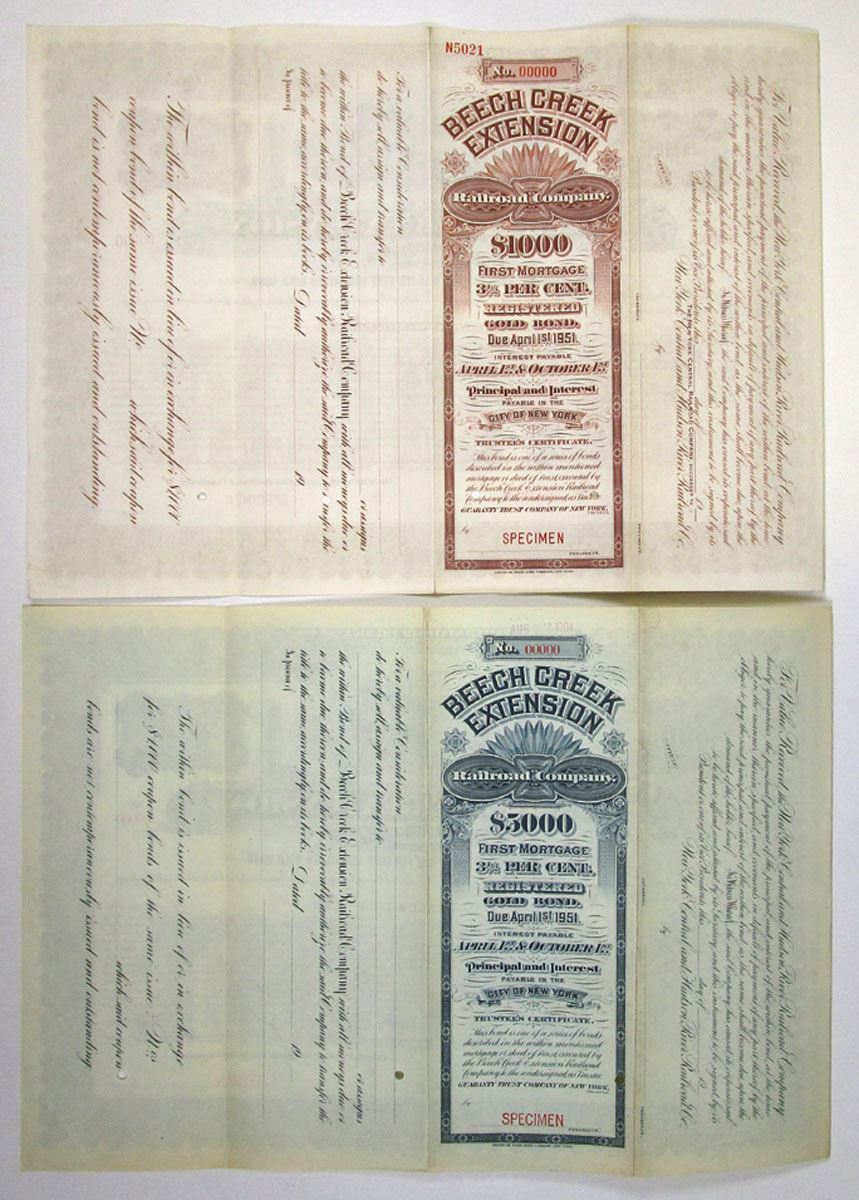 N5021
No. 00000
BEECH CREEK
EXTENSION
Railroad Company.
$1000
FIRST MORTGAGE
3½ PER CENT.
REGISTERED
GOLD BOND.
Due April 1st 1951.
INTEREST PAYABLE
APRIL 1st & OCTOBER 1st
Principal and Interest
PAYABLE IN THE
CITY OF NEW YORK
TRUSTEE'S CERTIFICATE.
This bond is one of a series of bonds
described in the within mentioned
mortgage or deed of trust, executed by
the Beech Creek Extension Railroad
Company to the undersigned, as trustee
GUARANTY TRUST COMPANY OF NEW YORK,
TRUSTEE,
by
SPECIMEN
PRESIDENT.
For a valuable Consideration
do hereby sell, assign and transfer to
or assigns
the within Bond of Beech Creek Extension Railroad Company with all moneys due or
to become due thereon, and do hereby irrevocably authorize the said Company to transfer the
title to the same, accordingly on its books. Dated 19
In presence of
The within bond is issued in lieu of or in exchange for $1000
coupon bond of the same issue No. which said coupon
bond is not contemporaneously issued and outstanding.
For Value Received, the New York Central and Hudson River Railroad Company
hereby guarantees the punctual payment of the principal and interest of the within bond, at the time
and in the manner therein specified, and covenants, in default of payment of any part thereof by the
obligor, to pay the said principal and interest of the within bond, as the same shall become due, upon the
demand of the holder hereof. In Witness Whereof, the said Company has caused its corporate seal
to be hereto affixed and attested by its Secretary, and this instrument to be signed by its
President or one of its Vice Presidents this day of
THE NEW YORK CENTRAL RAILROAD COMPANY, SUCCESSOR TO
New York Central and Hudson River Railroad Co.
by
No. 00000
BEECH CREEK
EXTENSION
Railroad Company.
$5000
FIRST MORTGAGE
3½ PER CENT.
REGISTERED
GOLD BOND.
Due April 1st 1951.
INTEREST PAYABLE
APRIL 1st & OCTOBER 1st
Principal and Interest
PAYABLE IN THE
CITY OF NEW YORK
TRUSTEE'S CERTIFICATE.
This bond is one of a series of bonds
described in the within mentioned
mortgage or deed of trust, executed by
the Beech Creek Extension Railroad
Company to the undersigned, as trustee
GUARANTY TRUST COMPANY OF NEW YORK,
TRUSTEE,
by
SPECIMEN
PRESIDENT.
For a valuable Consideration
do hereby sell, assign and transfer to
or assigns
the within Bond of Beech Creek Extension Railroad Company with all moneys due or
to become due thereon, and do hereby irrevocably authorize the said Company to transfer the
title to the same, accordingly on its books. Dated 19
In presence of
The within bond is issued in lieu of or in exchange
for $1000 coupon bonds of the same issue Nos
which said coupon
bonds are not contemporaneously issued and outstanding
For Value Received, the New York Central and Hudson River Railroad Company
hereby guarantees the punctual payment of the principal and interest of the within bond, at the time
and in the manner therein specified, and covenants, in default of payment of any part thereof by the
obligor, to pay the said principal and interest of the within bond, as the same shall become due, upon the
demand of the holder hereof. In Witness Whereof, the said Company has caused its corporate seal
to be hereto affixed and attested by its Secretary, and this instrument to be signed by its
President or one of its Vice Presidents this day of 19
New York Central and Hudson River Railroad Co.
by